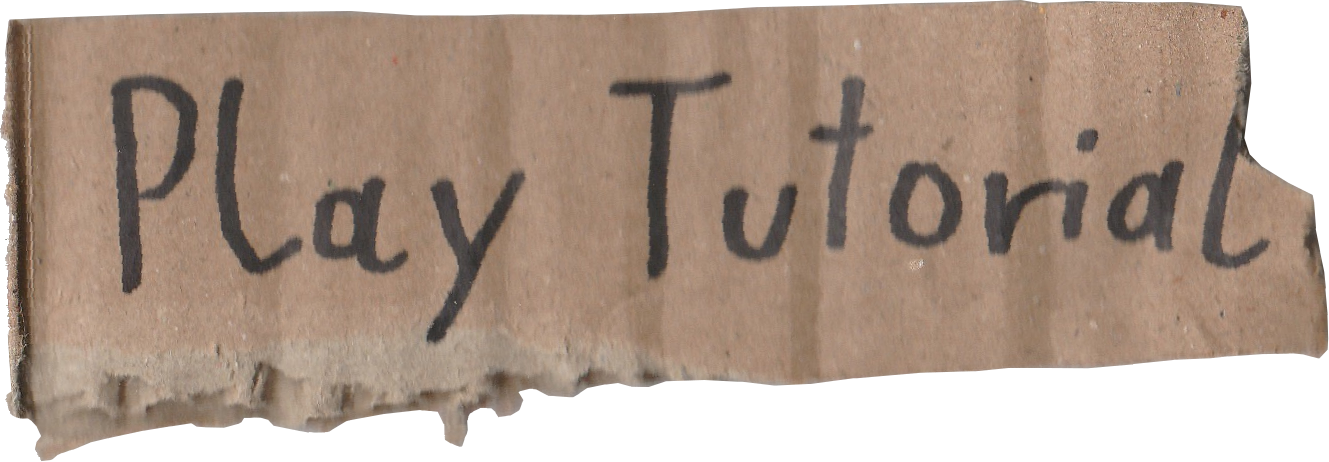 Play Tutorial